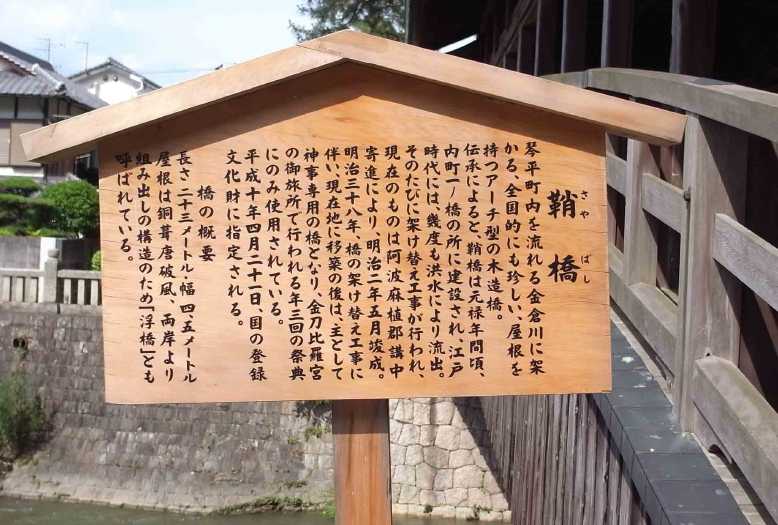 鞘橋
さや ばし
琴平町内を流れる金倉川に架
かる、全国的にも珍しい、屋根を
持つアーチ型の木造橋。
伝承によると、鞘橋は元禄年間頃、
内町一ノ橋の所に建設され、江戸
時代には、幾度も洪水により流出。
そのたびに架け替え工事が行われ、
現在のものは阿波麻植郡講中
寄進により、明治二年五月竣成。
明治三十八年、橋の架け替え工事に
伴い、現在地に移築の後は、主として
神事専用の橋となり、金刀比羅宮
の御旅所で行われる年三回の祭典
にのみ使用されている。
平成十年四月二十一日、国の登録
文化財に指定される。
橋の概要
長さ二十三メートル・幅四.五メートル
屋根は銅葺唐破風、両岸より
組み出しの構造のため「浮橋」とも
呼ばれている。